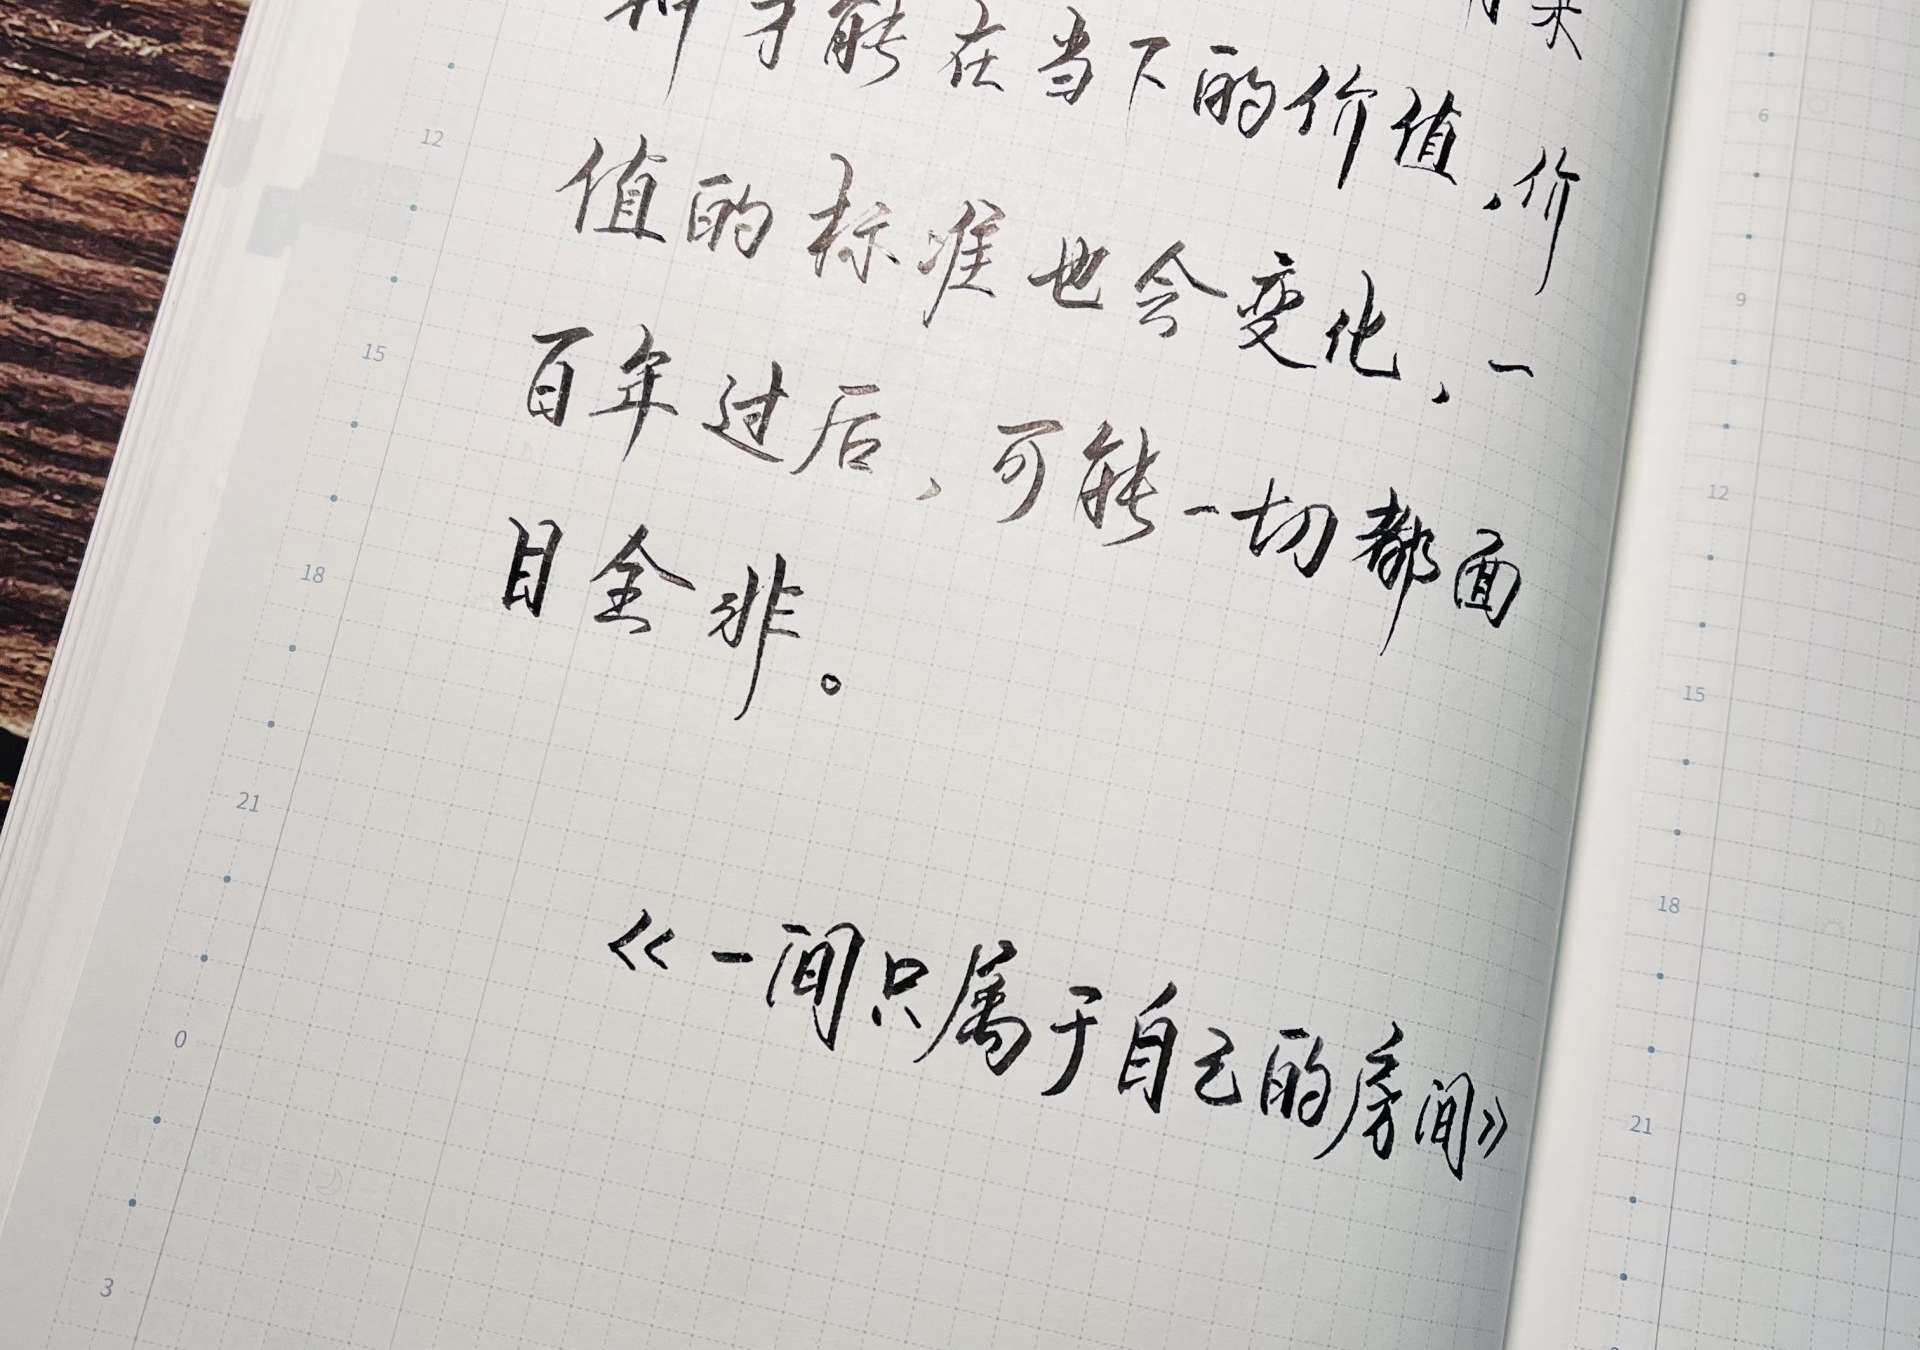 才能在当下的价值，价
值的标准也会变化，一
百年过后，可能一切都面
目全非。
《一间只属于自己的房间》
12
15
18
21
0
3
6
9
12
15
18
21